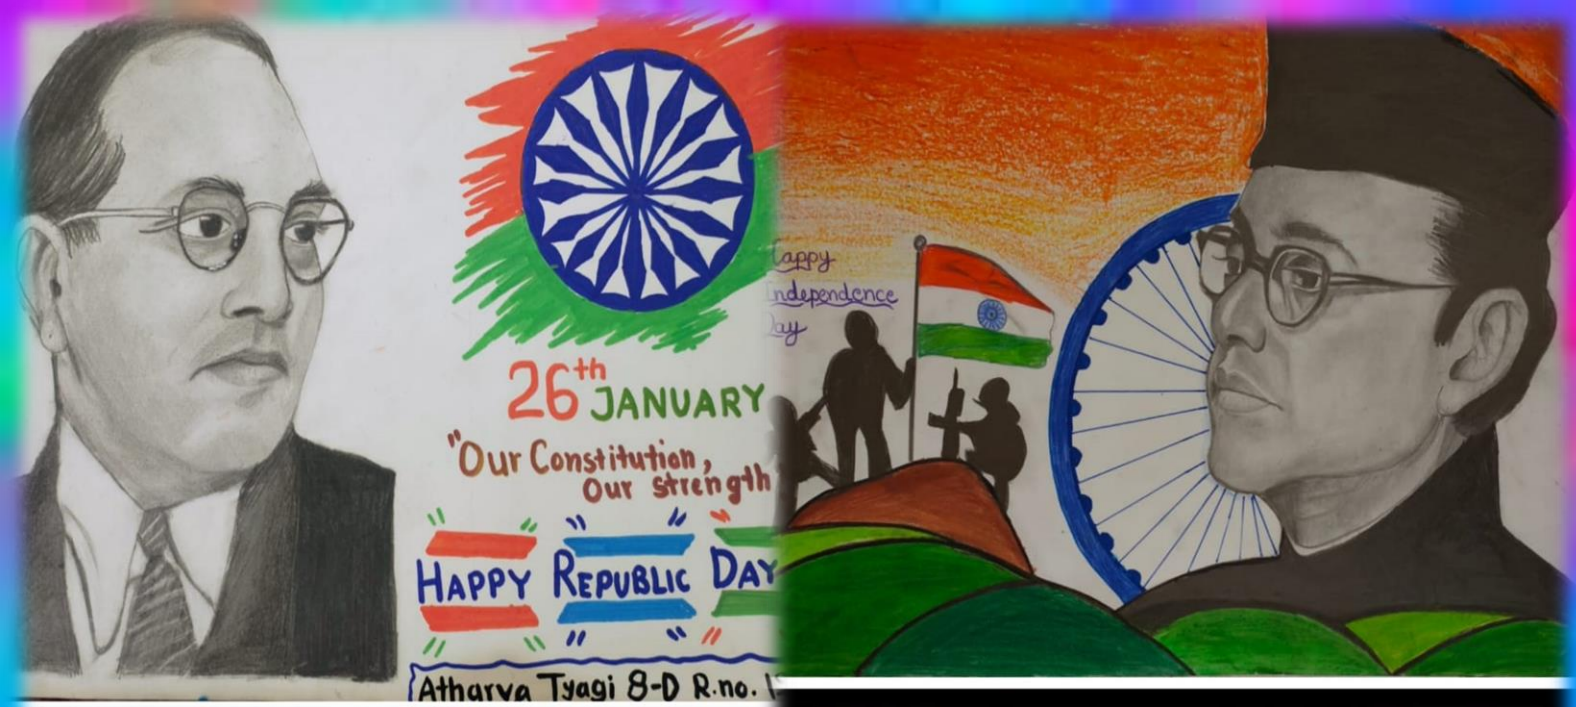 26th JANUARY
"Our Constitution,
Our strength
HAPPY REPUBLIC DAY
Atharva Tyagi 8-D R.no. 1
Happy
Independence
Day